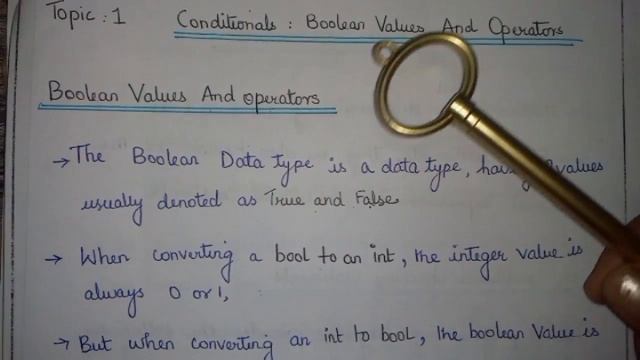 Topic : 1
Conditionals : Boolean Values And Operators
Boolean Values And operators
→ The Boolean Data type is a data type, values
usually denoted as True and False.
→ When converting a bool to an int, the integer value is
always 0 or 1,
→ But when converting an int to bool, the boolean Value is